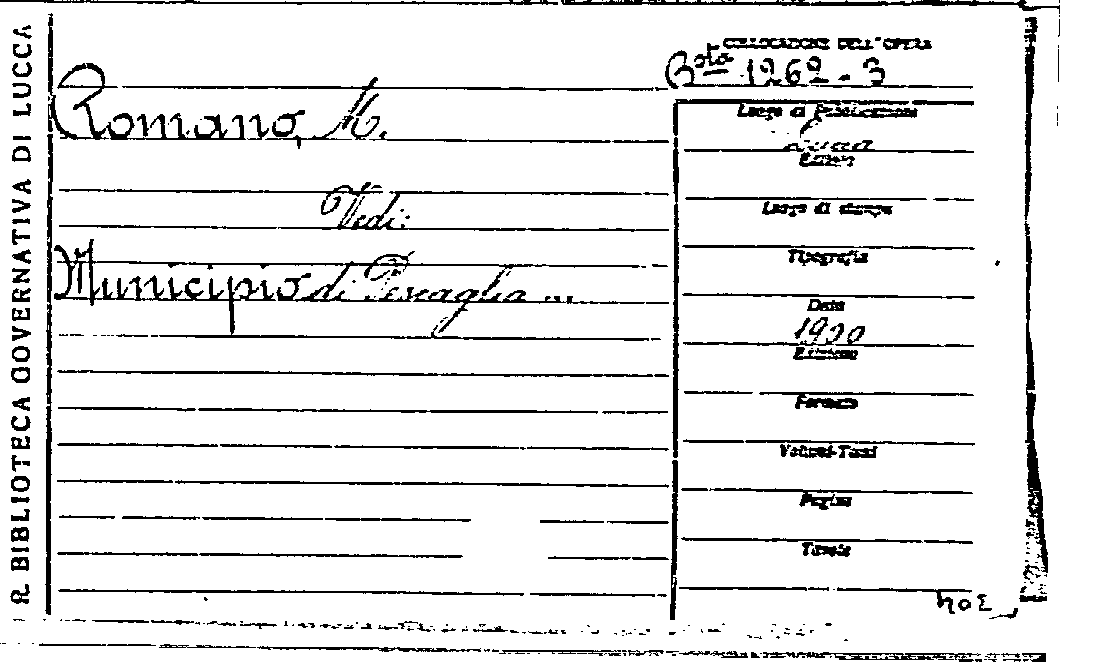 R. BIBLIOTECA GOVERNATIVA DI LUCCA
COLLOCAZIONE DELL'OPERA
Bta 1262-3
Romano, M.
Vedi:
Municipio di Pescaglia ...
Luogo di Pubblicazione
Lucca
Editore
Luogo di stampa
Tipografia
Data
1920
Edizione
Formato
Volumi-Tomi
Pagine
Tavole